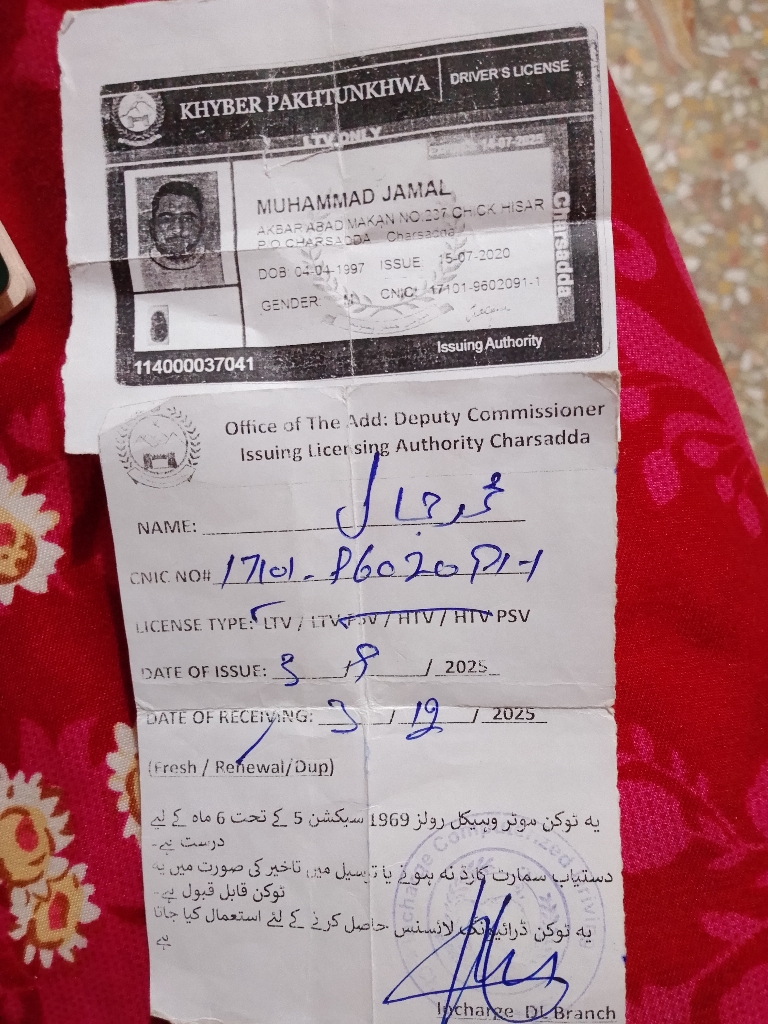 KHYBER PAKHTUNKHWA
DRIVER'S LICENSE
LTV ONLY
14-07-2025
MUHAMMAD JAMAL
AKBAR ABAD MAKAN NO:237 CHICK HISAR
P.O CHARSADDA Charsadda
DOB: 04-04-1997 ISSUE 15-07-2020
GENDER: M CNIC: 17101-9602091-1
Charsadda
Issuing Authority
114000037041
Office of The Add: Deputy Commissioner
Issuing Licensing Authority Charsadda
NAME: محمد جمال
CNIC NO# 17101-9602091-1
LICENSE TYPE: LTV / LTV PSV / HTV / HTV PSV
DATE OF ISSUE: 3 / 9 / 2025
DATE OF RECEIVING: 3 / 12 / 2025
(Fresh / Renewal/Dup)
یہ ٹوکن موٹر وہیکل رولز 1969 سیکشن 5 کے تحت 6 ماہ کے لیے
درست ہے۔
دستیاب سمارٹ کارڈ نہ ہونے یا ترسیل میں تاخیر کی صورت میں یہ
ٹوکن قابل قبول ہے۔
یہ ٹوکن ڈرائیونگ لائسنس حاصل کرنے کے لئے استعمال کیا جاتا
ہے
Incharge DL Branch